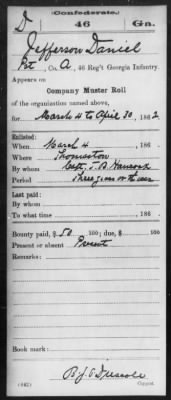 Confederate.
D 46 Ga.
Jefferson Daniel
Pvt, Co. A, 46 Reg't Georgia Infantry.
Appears on
Company Muster Roll
of the organization named above,
for March 4 to April 30, 1862
Enlisted:
When March 4, 186
Where Thomaston
By whom Capt. J. B. Hancock
Period Three years or the war
Last paid:
By whom
To what time , 186
Bounty paid, $ 50 100; due, $ 100
Present or absent Present
Remarks:
Book mark:
(642) Copyist.